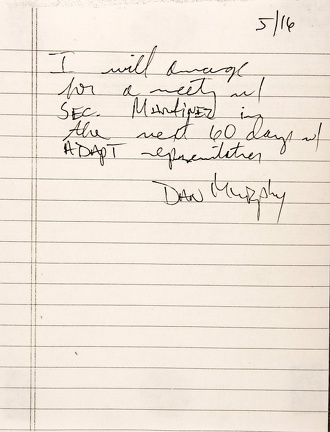 5/16
I will arrange
for a meeting w/
SEC. Martinez in
the next 60 days w/
ADAPT representatives
Dan Murphy